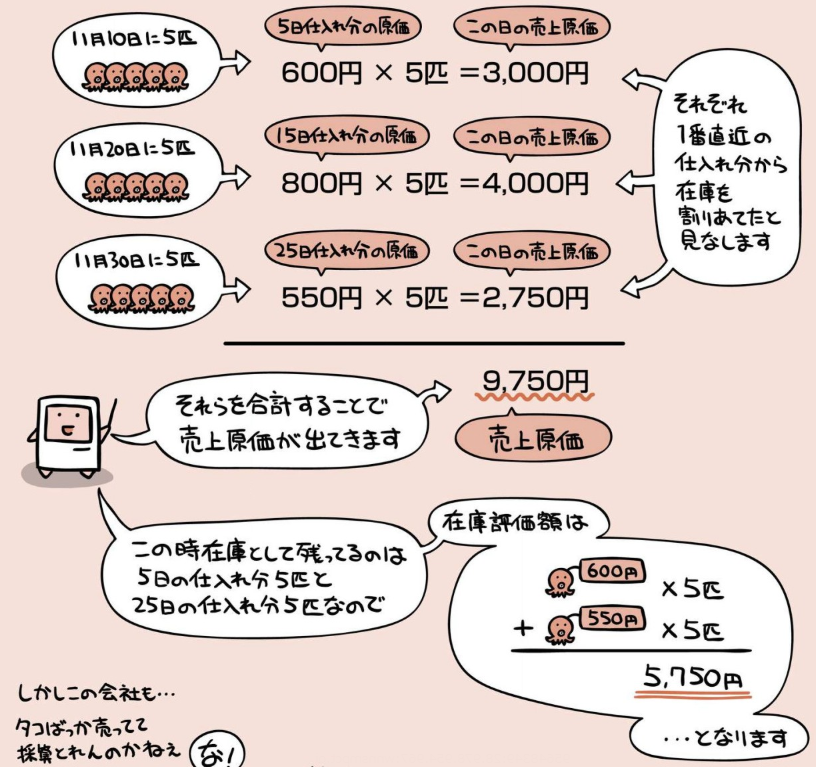 11月10日に5匹
5日仕入れ分の原価
この日の売上原価
600円 × 5匹 =3,000円
11月20日に5匹
15日仕入れ分の原価
この日の売上原価
800円 × 5匹 =4,000円
11月30日に5匹
25日仕入れ分の原価
この日の売上原価
550円 × 5匹 =2,750円
それぞれ
1番直近の
仕入れ分から
在庫を
割りあてたと
見なします
それらを合計することで
売上原価が出てきます
9,750円
売上原価
この時在庫として残ってるのは
5日の仕入れ分5匹と
25日の仕入れ分5匹なので
在庫評価額は
600円 ×5匹
+ 550円 ×5匹
5,750円
…となります
しかしこの会社も…
タコばっか売ってて
採算とれんのかねぇ
な!